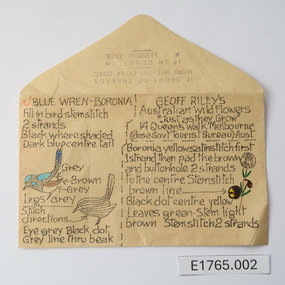 IF SHORT OF THREADS
MORE WITHOUT EXTRA COST
IF IN DOUBT
BLUE WREN-BORONIA
Fill in bird stemstitch
2 strands
Black where shaded
Dark blue centre tail
Grey
Brown
Grey
Legs Grey
Stitch
Directions
Eye grey Black dot
Grey line thru beak
GEOFF RILEY'S
Australian Wild Flowers
"Just as they Grow"
14 Queens Walk Melbourne
(close Gov Tourist Bureau) Aust
Boronia yellow satinstitch first
1 strand then pad the brown
and buttonhole 2 strands
To the centre Stemstitch
brown line
Black dot centre yellow
Leaves green-stem light
brown Stemstitch 2 strands
E1765.002